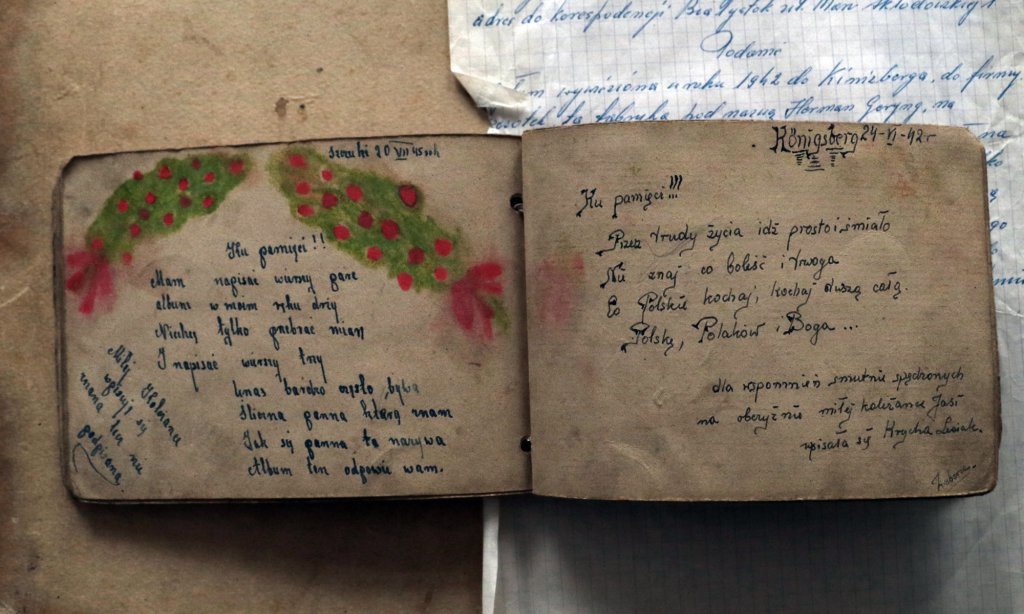 adres do korespodencji Białystok ul. Mari Skłodowskiej 1
Podanie
wywieziona w roku 1942 do Kinizberga, do firmy
ta fabryka pod nazwą Herman Geryng, na
20 VII 45 rok
Ku pamięci!!
Mam napisać wierszy parę
album w moim ręku drży
Niechcę tylko przebrać miarę
I napisać wierszy trzy
Unas bardzo często bywa
Śliczna panna którą znam
Jak się panna ta nazywa
Album ten odpowie wam.
Miłej Koleżance
wpisuje się
znana lecz nie
podpisana
Königsberg 24-VI-42r
Ku pamięci!!!
Przez trudy życia idź prosto i śmiało
Nie znaj co boleść i trwoga
Co Polskie kochaj, kochaj duszą całą.
Polskę, Polaków i Boga...
dla wspomnień smutnie spędzonych
na obczyźnie miłej koleżance Jasi
wpisała się Krycha Lesiak.